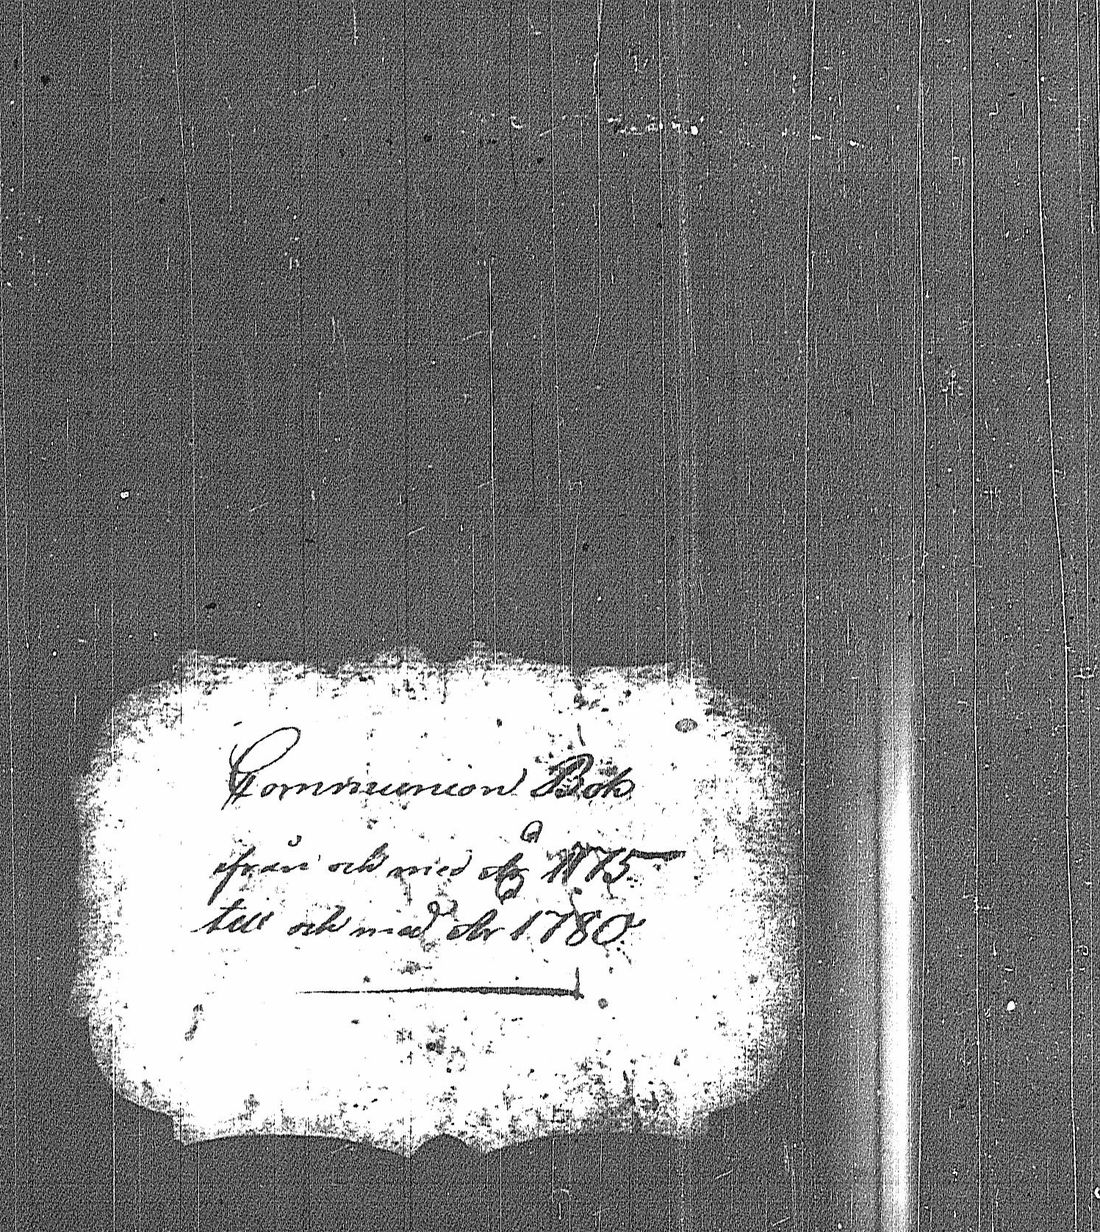 Communion Bok
ifrån och med år 1775
till och med år 1780